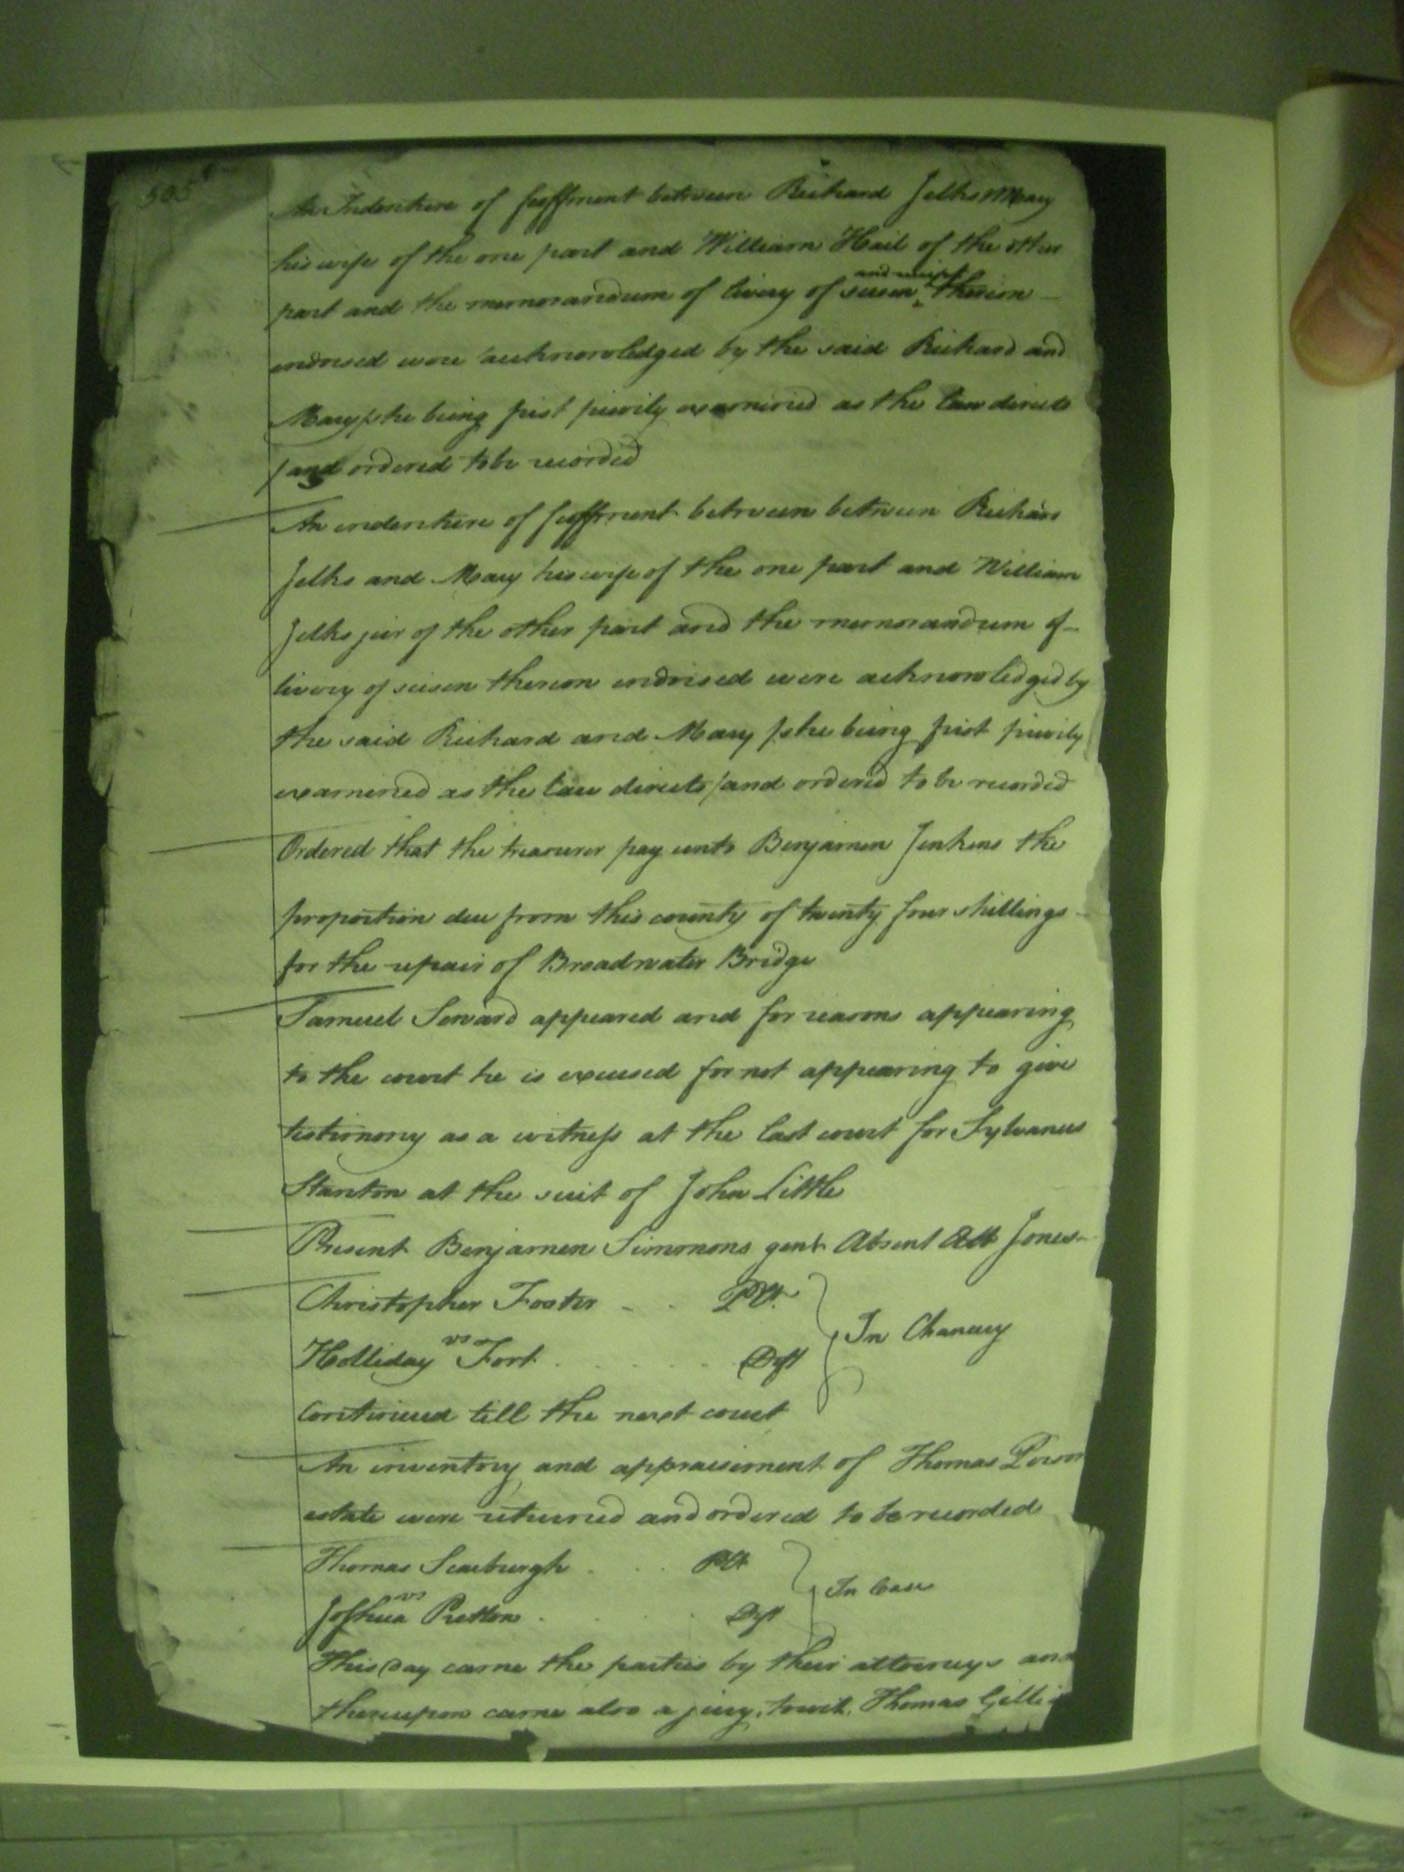 505
An Indenture of feoffment between Richard Jelks & Mary
his wife of the one part and William Hail of the other
part and the memorandum of livery of seisen and receipt thereon
endorsed were acknowledged by the said Richard and
Mary /she being first privily examined as the law directs
/and ordered to be recorded
An indenture of feoffment between between Richard
Jelks and Mary his wife of the one part and William
Jelks jur of the other part and the memorandum of
livery of seisen thereon endorsed were acknowledged by
the said Richard and Mary /she being first privily
examined as the law directs/ and ordered to be recorded
Ordered that the treasurer pay unto Benjamen Jenkens the
proportion due from this county of twenty four shillings
for the repair of Broadwater Bridge
Samuel Seward appeared and for reasons appearing
to the court he is excused for not appearing to give
testimony as a witness at the last court for Sylvanus
Stanton at the suit of John Little
Present Benjamen Simmons gent Absent Jones
Christopher Foster Plt
vs In Chancery
Holliday Fort Deft
Continued till the next court
An inventory and appraisement of Thomas
estate were returned and ordered to be recorded
Thomas Scarburgh Plt
vs In Case
Joshua Pretlow Deft
This Day came the parties by their attorneys and
thereupon came also a jury, towit, Thomas